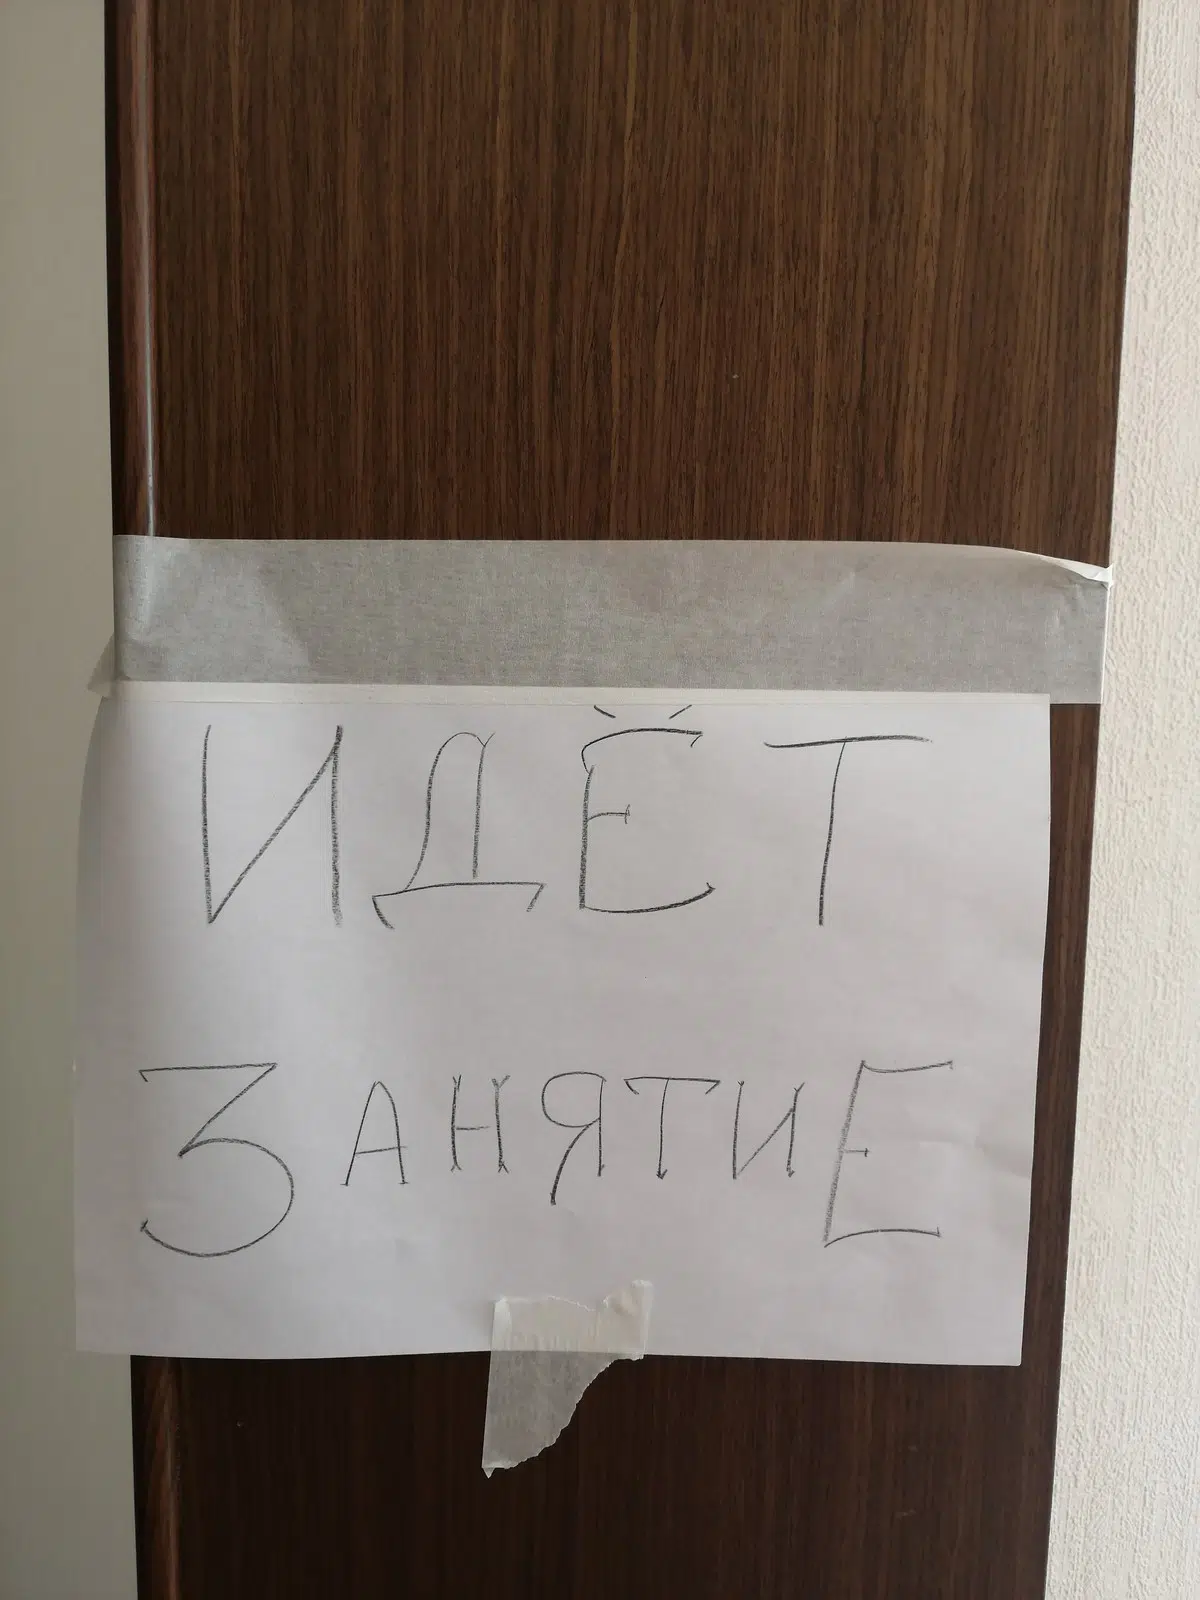 ИДЁТ
ЗАНЯТИЕ